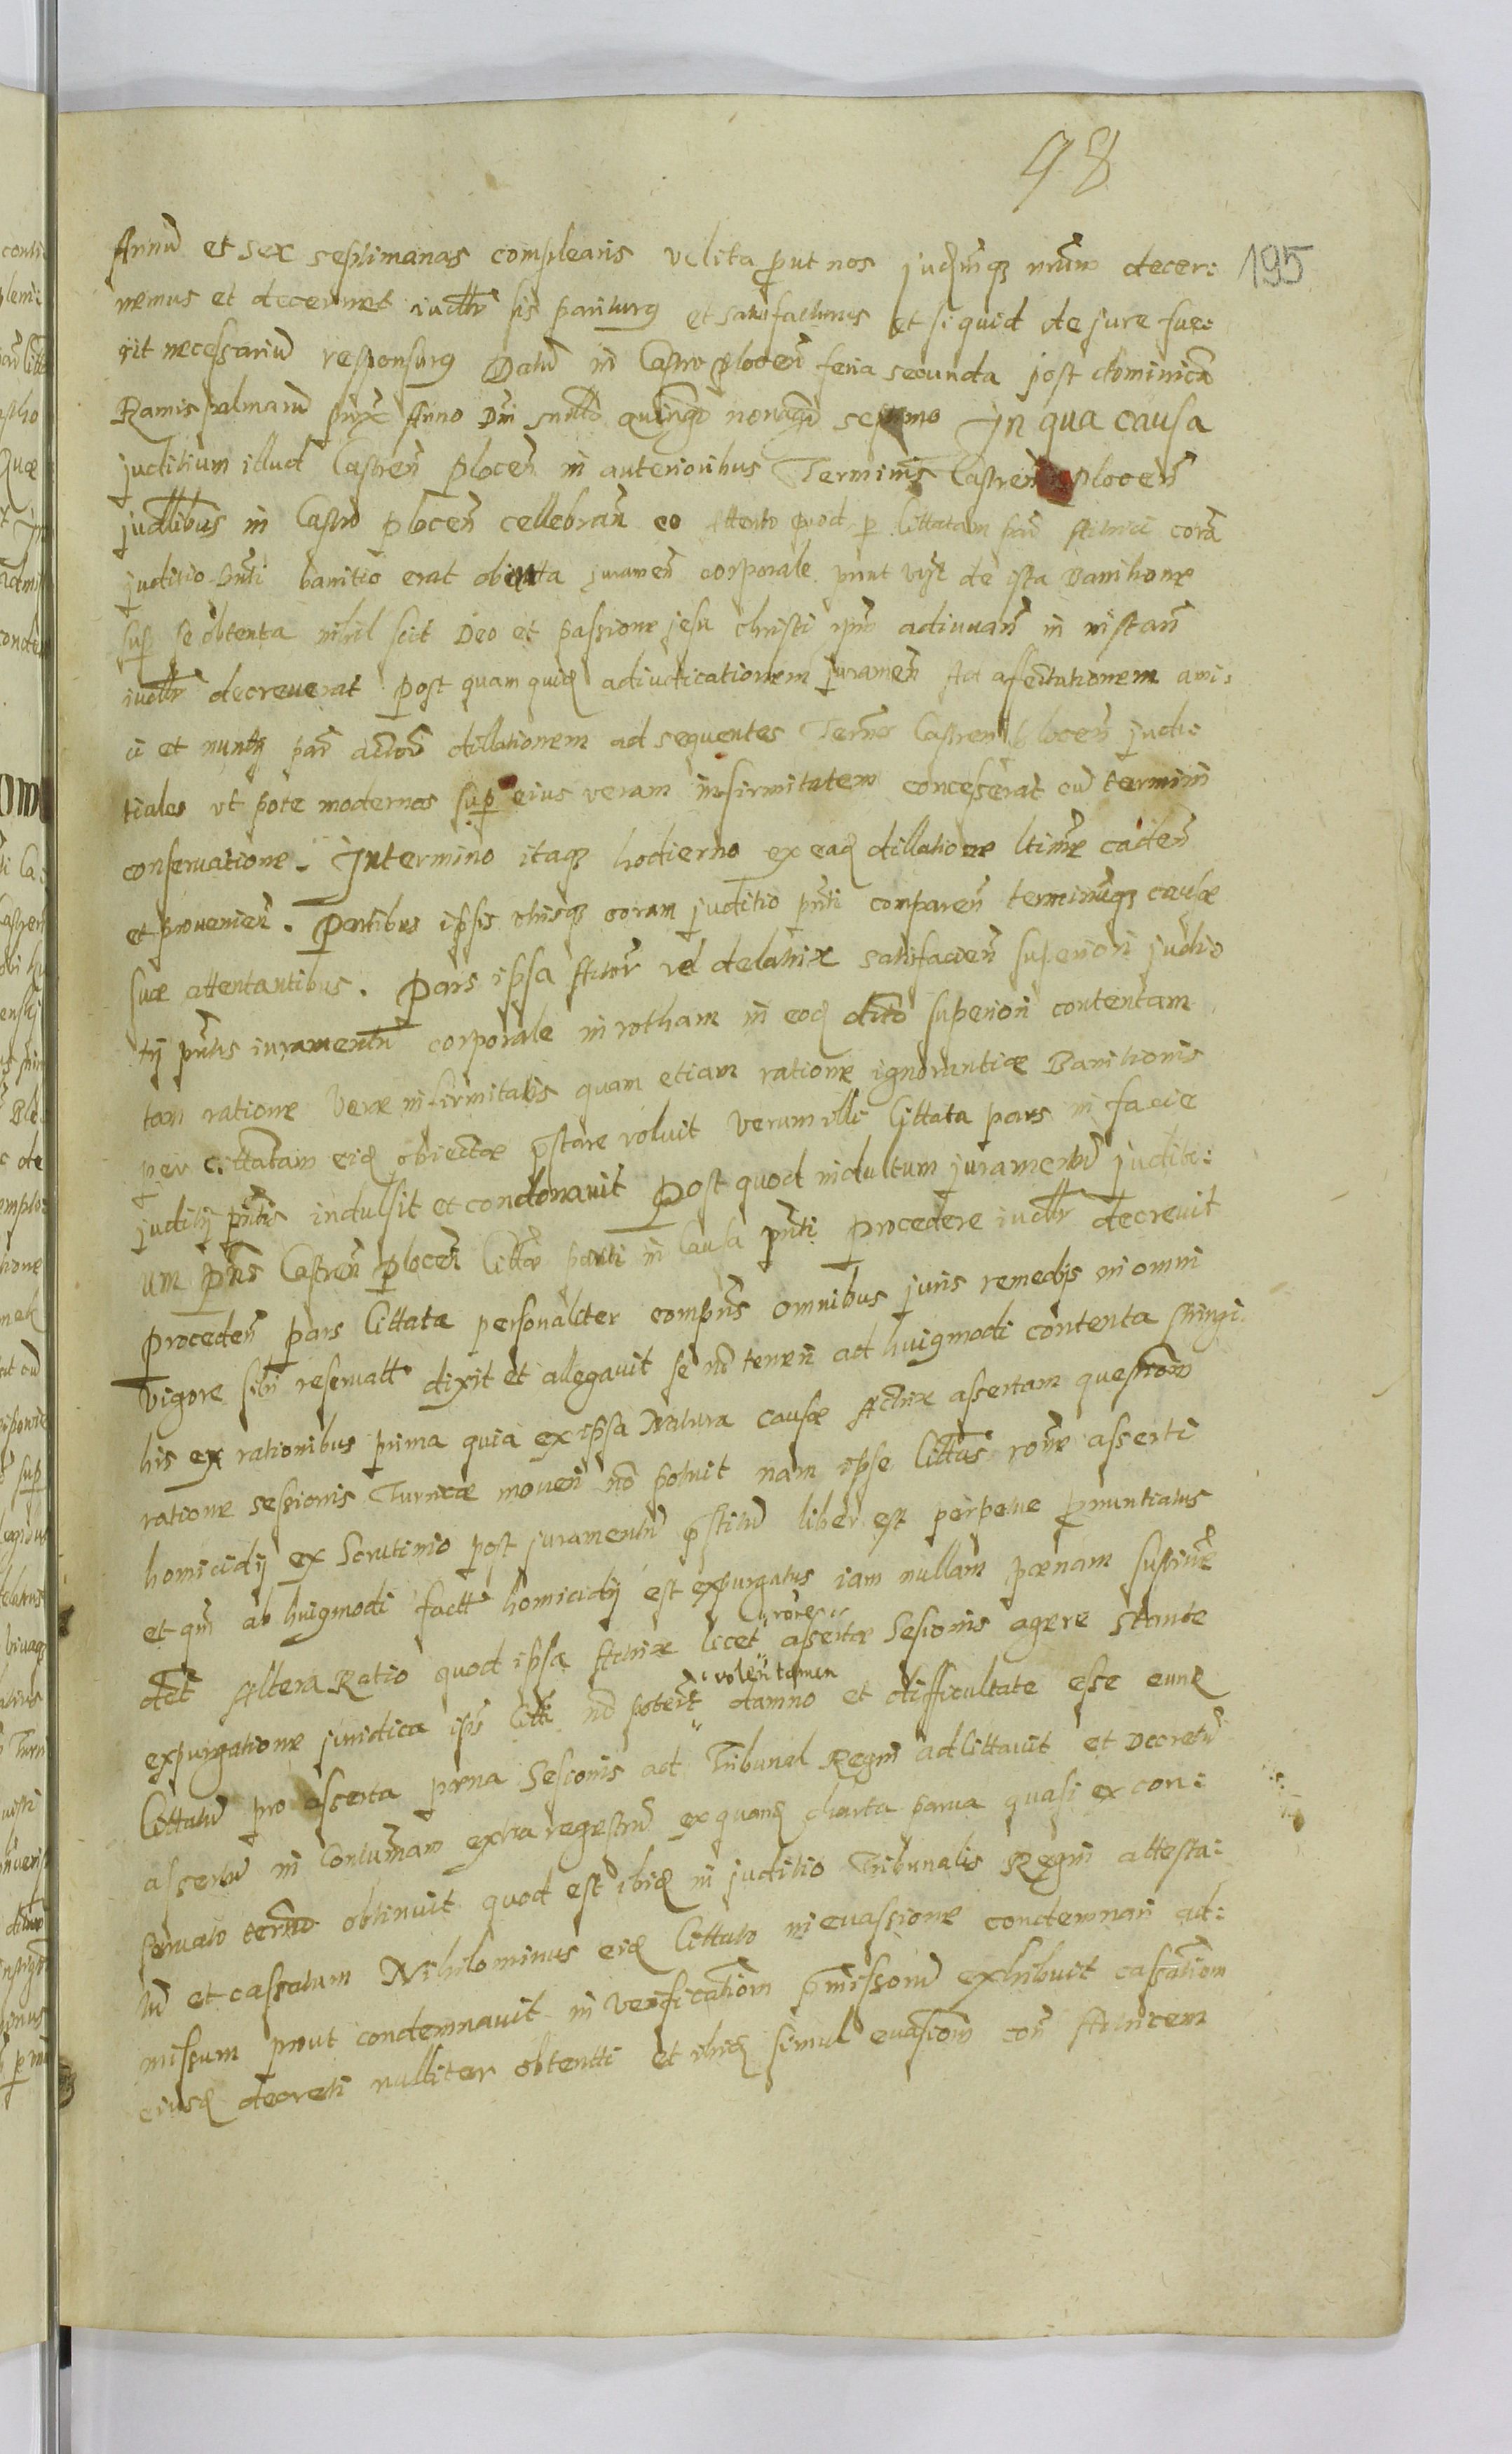 98
195
Annũ et sex septimanas complearis velita put nos judiuq nrum decer:
nemus et decernet iudlr sis pariturq et satisfacturus et si quid de jure fue:
rit necessariũ responsurq Datũ in Castro plocen feria secunda post dominicã
Ramis palmarũ prox Anno Dni millo quingo nonago septimo In qua causa
juditium illud Castren plocen in anterioribus Terminis Castren plocen
judlibus in Castro plocen cellebran eo attento quod p Cittatam par Actrici corã
juditio pnti banitio erat obiecta juramen corporale prout de ista Banitione
sup se obtenta nihil scit Deo et passione jesu christi adiuvan in instan
iudlr decreverat post quam quid adiudicationem juramen Ad affectationem ami:
ci et nuntij par dillationem ad sequentes Termos Castren plocen judi:
tiales ut pote modernos sup eius veram infirmitatem concesserat cũ termini
conservatione. In termino itaq hodierno ex ead dillatione ltime caden
et provenien. Partibus ipsis utrisq coram juditio pnti comparen terminuq causæ
suæ attentantibus. Pars ipsa Actor vel delatrix satisfacien superiori judi
tij pntis iuramentũ corporale in rotham in eod dicto superiori contentam
tam ratione veræ infirmitatis quam etiam ratione ignorantiæ Banitionis
per cittatam eid obiectæ pstare voluit verum illi Cittata pars in facie
juditij pntis indulsit et condonavit Post quod indultum juramentũ juditi:
um pns Castren plocen Cittæ parti in Causa pnti procedere iudlr decrevit
Proceden pars Cittata personaliter compns omnibus juris remedijs in omni
vigore sibi reservatt dixit et allegavit se nõ teneri ad huiqmodi contenta stringi
his ex rationibus prima quia ex ipsa Natura causæ Actrix assertam questiom
ratione sessionis Turricæ moven nõ potuit nam ipse Cittatus rone asserti
homicidij ex Scrutinio post juramentũ pstitũ liber est perpetue pnuntiatus
et qui ab huiqmodi factt homicidij est expurgatus iam nullam pœnam sustinere
det Altera Ratio quod ipsa Actrix licet rone assertæ Sesionis agere stante
expurgatione juridica ipi Citti nõ poterit volen tamen damno et difficultate esse eund
Cittatũ pro asserta pœna Sesionis ad Tribunal Regni adcittavit et Decretũ
assertũ in Contumam extra regestrũ ex quad charta parva quasi ex con:
servato termo obtinuit quod est ibid in juditio Tribunalis Regni attesta:
tũ et cassatum Nihilominus eid Cittato in evassione condemnari ad:
missum prout condemnavit in verificatiom pmissorũ exhibuit cassatiom
eiusd decreti nulliter obtentti et ibid simul evasiom con Actricem